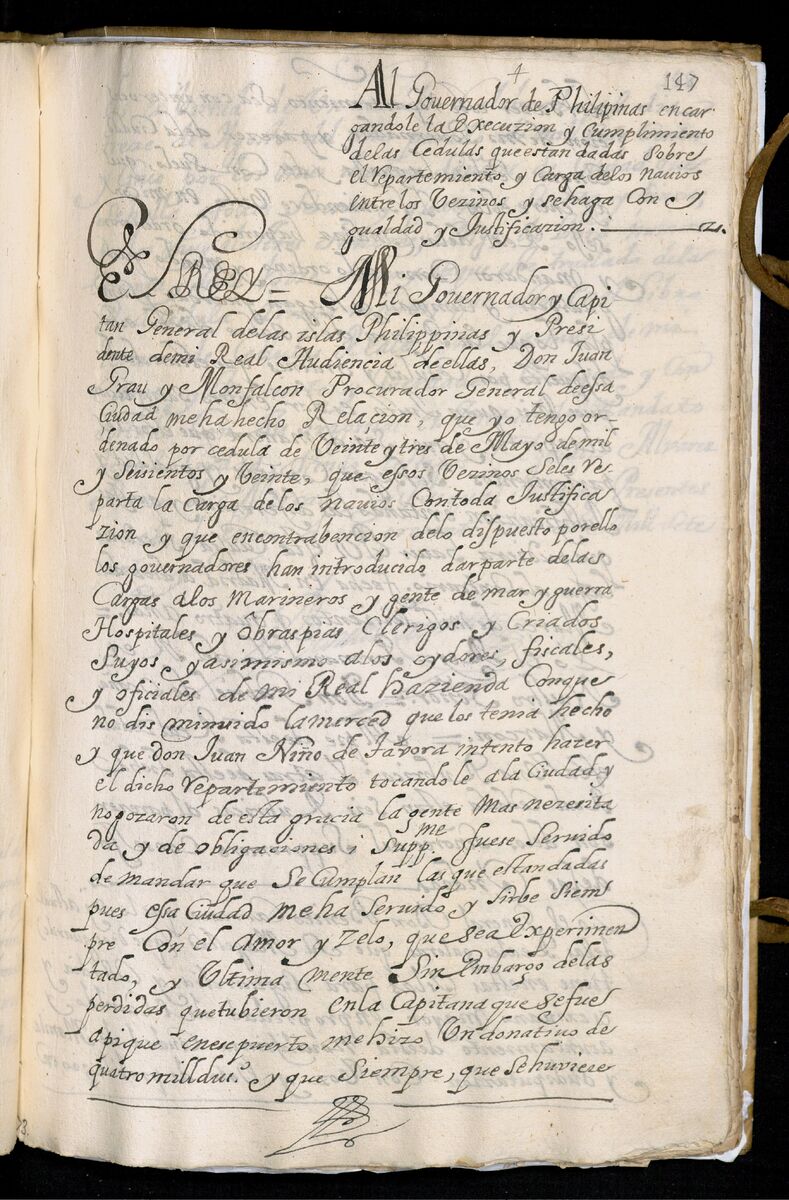 4
147
Al Governador de Philipinas encar
gandole la Execuzion y Cumplimiento
delas Cedulas que estan dadas Sobre
el repartemiento y Carga delos navios
entre los Vezinos y sehaga Con y
gualdad y Justificazion.
El REY = Mi Governador y Capi
tan General delas islas Philippinas y Presi
dente demi Real Audiencia de ellas, Don Juan
Grau y Monfalcon Procurador General de essa
Ciudad meha hecho Relacion, que yo tengo or-
denado por cedula de Veinte y tres de Mayo demil
y Seisientos y Veinte, que essos Vezinos Seles re
parta la Carga delos navios Contoda Justifica
zion y que encontrabencion delo dispuesto por ello
los governadores han introducido dar parte delas
Cargas alos Marineros y gente de mar y guerra
Hospitales y Obraspias Clerigos y Criados
Suyos yasimismo alos oydores, fiscales,
y oficiales de mi Real hazienda Conque
no dis minuido lamerced que los tenia hecho
y que don Juan Niño de Tavora intento hazer
el dicho repartemiento tocandole ala Ciudad y
no gozaron de esta gracia la gente Mas nezesita
da y de obligaciones i Supp.me fuese Servido
de mandar que Se Cumplan las que estan dadas
pues essa Ciudad meha Servido y Sirbe Siem
pre Con el Amor y Zelo, que sea Experimen
tado, y Ultima mente Sin Embargo delas
perdidas que tubieron en la Capitana que se fue
apique en ese puerto mehizo Un donativo de
quatro mill du.os y que Siempre, que Sehuviere